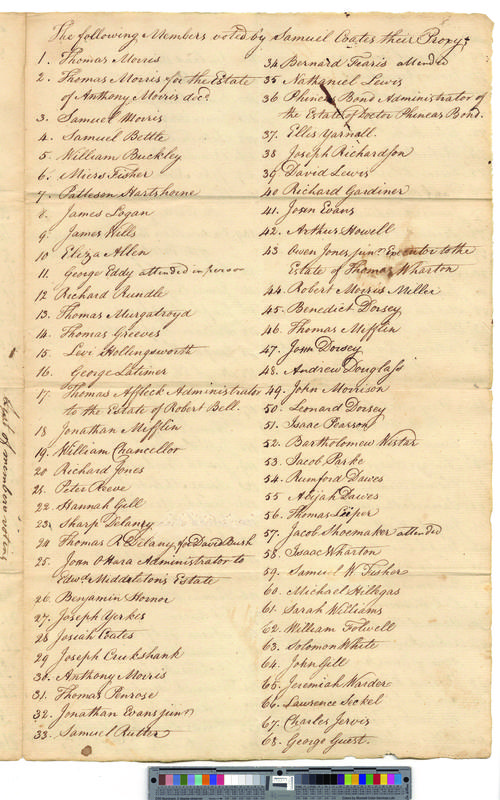 The following Members voted by Samuel Coates their Proxy;
1. Thomas Morris
2. Thomas Morris for the Estate
of Anthony Morris decd.
3. Samuel Morris
4. Samuel Bettle
5. William Buckley
6. Miers Fisher
7. Patteson Hartshorne
8. James Logan
9. James Wills
10 Eliza Allen
11. George Eddy attended in person
12 Richard Rundle
13. Thomas Murgatroyd
14. Thomas Greeves
15. Levi Hollingsworth
16. George Latimer
17. Thomas Affleck Administrator
to the Estate of Robert Bell.
18 Jonathan Mifflin
19. William Chancellor
20 Richard Jones
21. Peter Reeve
22. Hannah Gill
23. Sharp Delaney
24 Thomas R Delany, for David Bush
25. John O Hara Administrator to
Edwd. Middleton's Estate
26. Benjamin Hornor
27. Joseph Yerkes
28 Josiah Coates
29 Joseph Crukshank
30. Anthony Morris
31. Thomas Penrose
32. Jonathan Evans junr.
33. Samuel Rutter
34 Bernard Fearis attended
35 Nathaniel Lewis
36 Phineas Bond Administrator of
the Estate of Doctor Phineas Bond.
37. Elles Yarnall.
38 Joseph Richardson
39 David Lewis
40 Richard Gardiner
41. John Evans
42. Arthur Howell
43. Owen Jones junr. Executor to the
Estate of Thomas Wharton
44. Robert Morris Miller
45. Benedict Dorsey
46. Thomas Mifflin
47. John Dorsey
48. Andrew Douglass
49. John Morrison
50. Leonard Dorsey
51. Isaac Pearson
52. Bartholomew Wistar
53. Jacob Parke
54. Rumford Dawes
55 Abijah Dawes
56. Thomas Leiper
57. Jacob Shoemaker attended
58. Isaac Wharton
59. Samuel W. Fisher
60. Michael Hillegas
61. Sarah Williams
62. William Folwell
63. Solomon White
64. John Gill
65. Jeremiah Warder
66. Lawrence Seckel
67. Charles Jervis
68. George Guest.
List of members voting